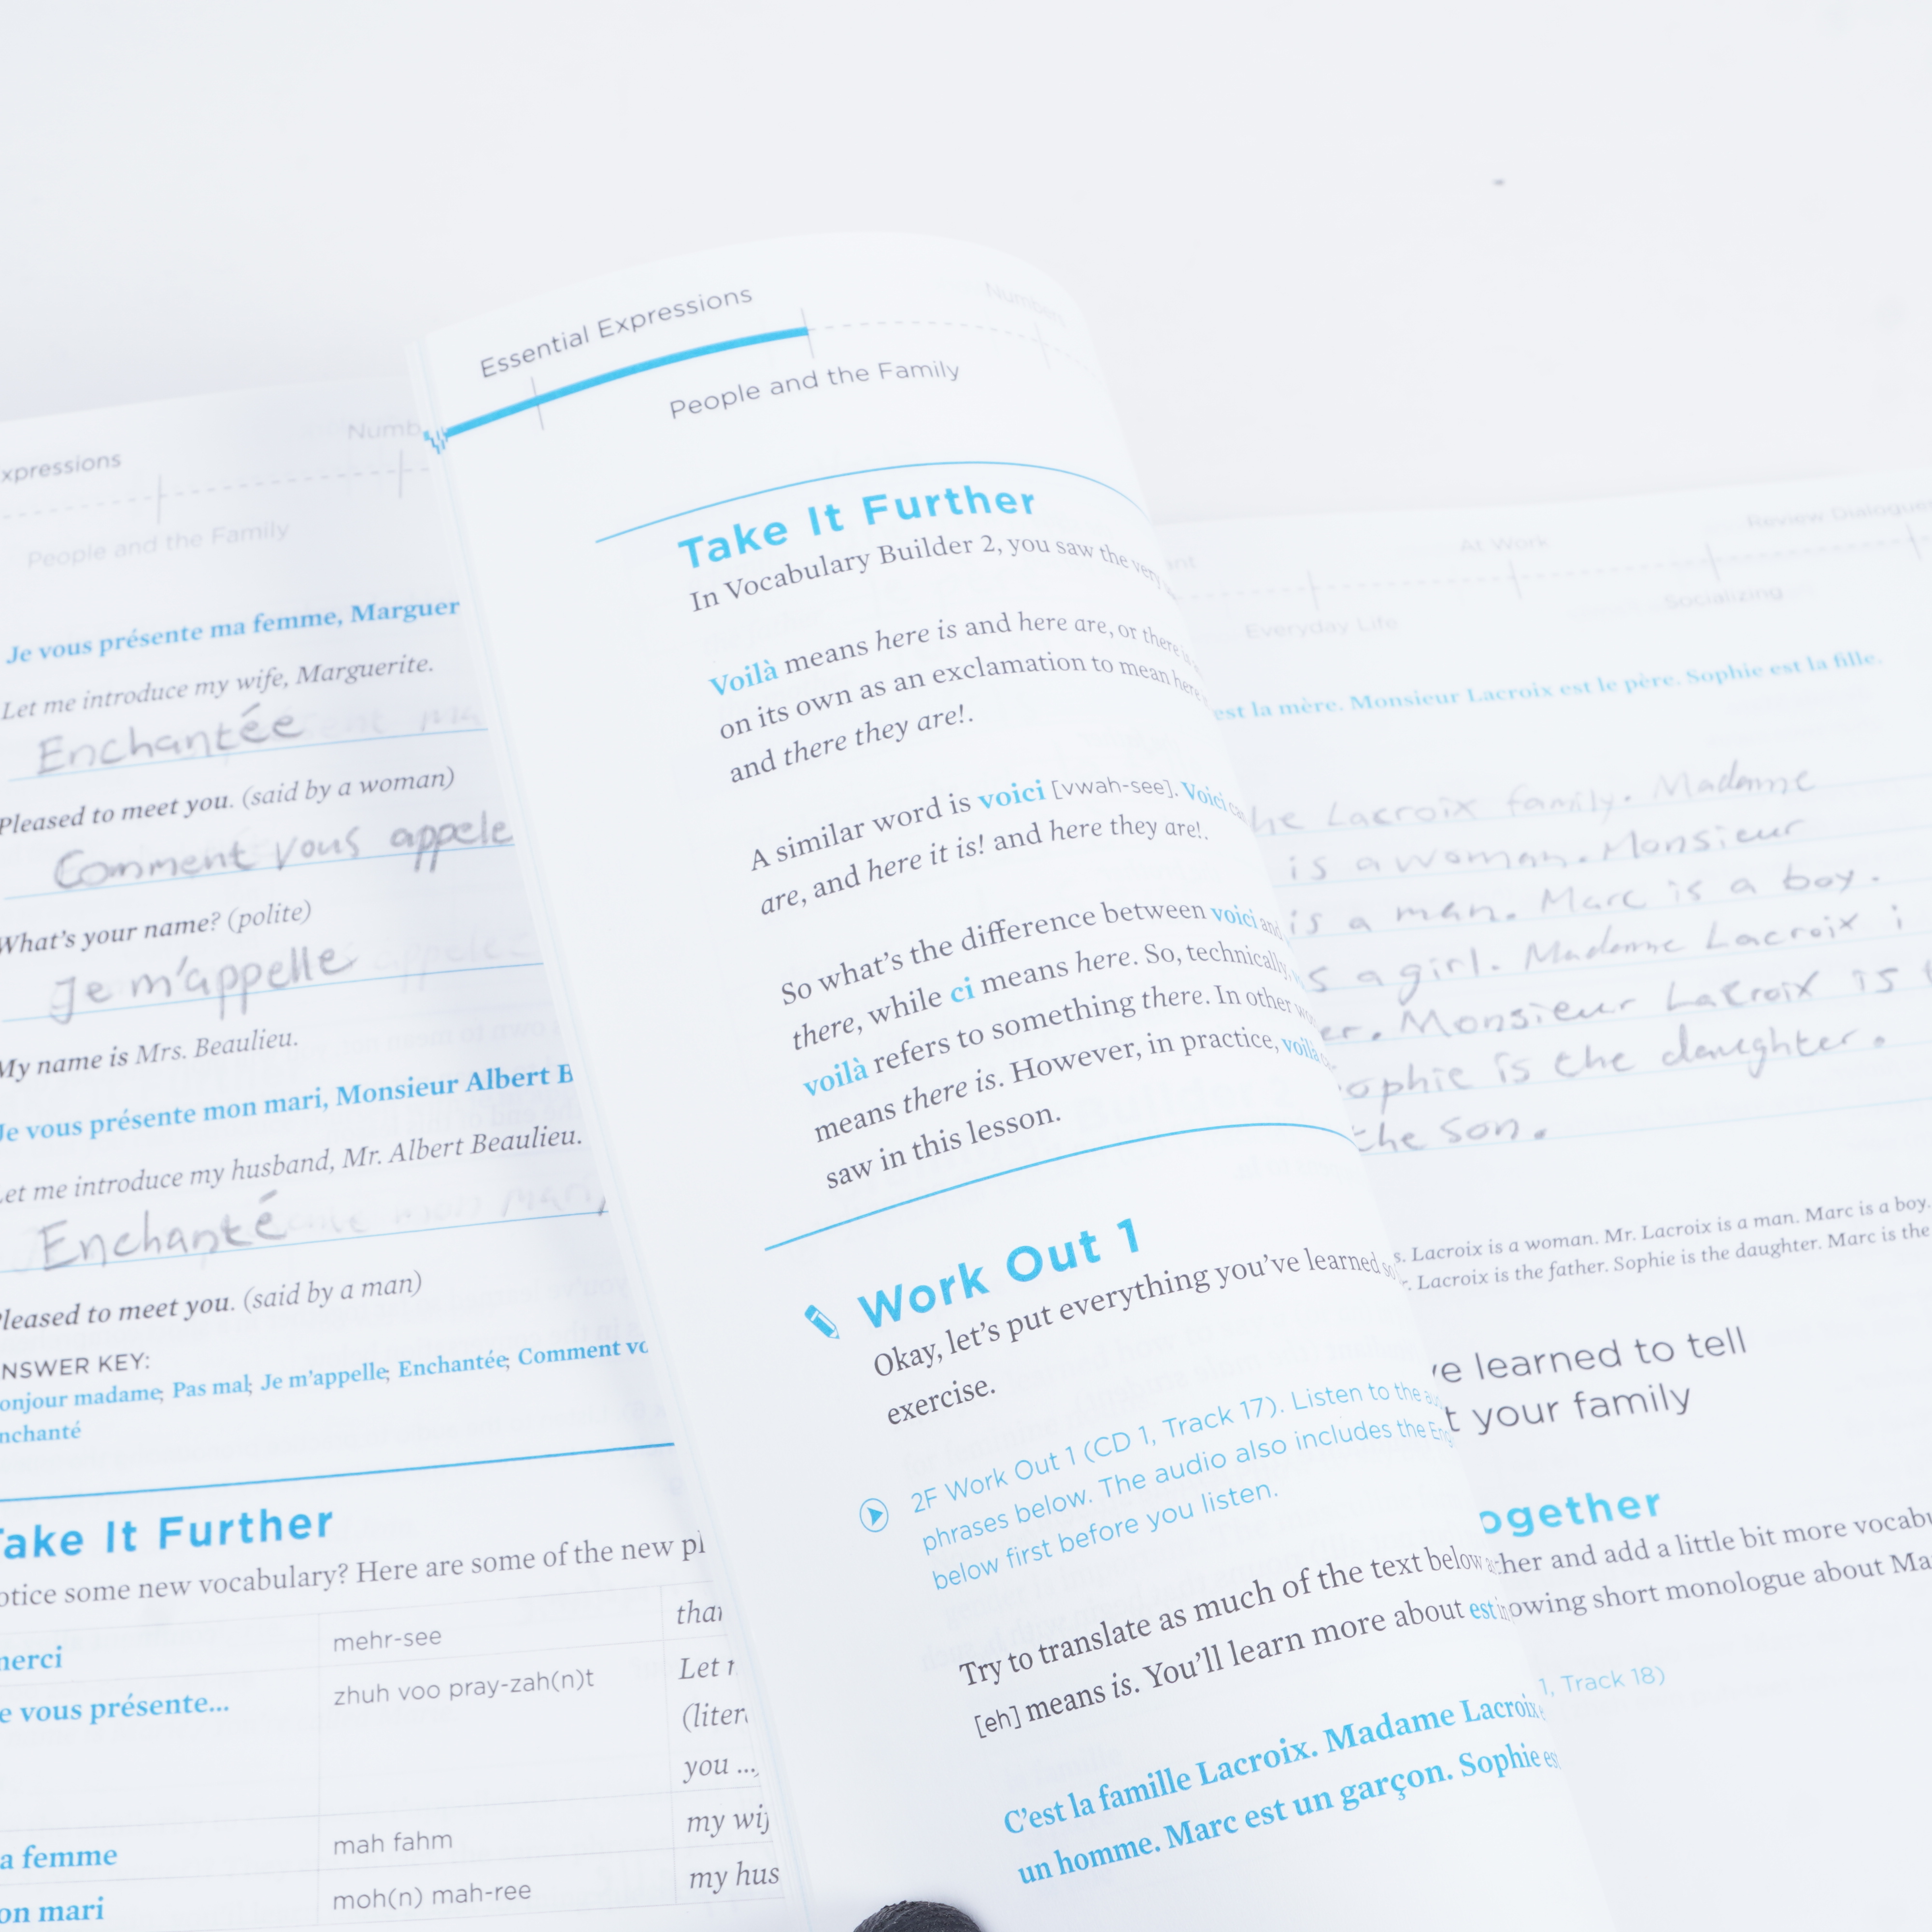 xpressions
Numb
People and the Family
Je vous présente ma femme, Marguer
Let me introduce my wife, Marguerite.
Enchantée
Pleased to meet you. (said by a woman)
Comment vous appele
What's your name? (polite)
Je m'appelle
My name is Mrs. Beaulieu.
Je vous présente mon mari, Monsieur Albert B
Let me introduce my husband, Mr. Albert Beaulieu.
Enchanté
Pleased to meet you. (said by a man)
NSWER KEY:
onjour madame; Pas mal; Je m'appelle; Enchantée; Comment vo
nchanté
Take It Further
otice some new vocabulary? Here are some of the new pl
merci mehr-see than
e vous présente... zhuh voo pray-zah(n)t Let
(liter
you ...
a femme mah fahm my wif
on mari moh(n) mah-ree my hus
Essential Expressions
Numbers
People and the Family
Take It Further
In Vocabulary Builder 2, you saw the very
Voilà means here is and here are, or there is
on its own as an exclamation to mean here
and there they are!.
A similar word is voici [vwah-see]. Voici
are, and here it is! and here they are!.
So what's the difference between voici and
there, while ci means here. So, technically,
voilà refers to something there. In other
means there is. However, in practice, voilà
saw in this lesson.
Work Out 1
Okay, let's put everything you've learned so
exercise.
2F Work Out 1 (CD 1, Track 17). Listen to the
phrases below. The audio also includes the Eng
below first before you listen.
Try to translate as much of the text below
[eh] means is. You'll learn more about est in
C'est la famille Lacroix. Madame Lacroix
un homme. Marc est un garçon. Sophie es
ant
At Work
Review Dialogues
Everyday Life
Socializing
est la mère. Monsieur Lacroix est le père. Sophie est la fille.
he Lacroix family. Madame
is a woman. Monsieur
is a man. Marc is a boy.
s a girl. Madame Lacroix i
er. Monsieur Lacroix is t
ophie is the daughter.
the son.
s. Lacroix is a woman. Mr. Lacroix is a man. Marc is a boy.
r. Lacroix is the father. Sophie is the daughter. Marc is the
've learned to tell
t your family
ogether
ther and add a little bit more vocabu
owing short monologue about Ma
1, Track 18)